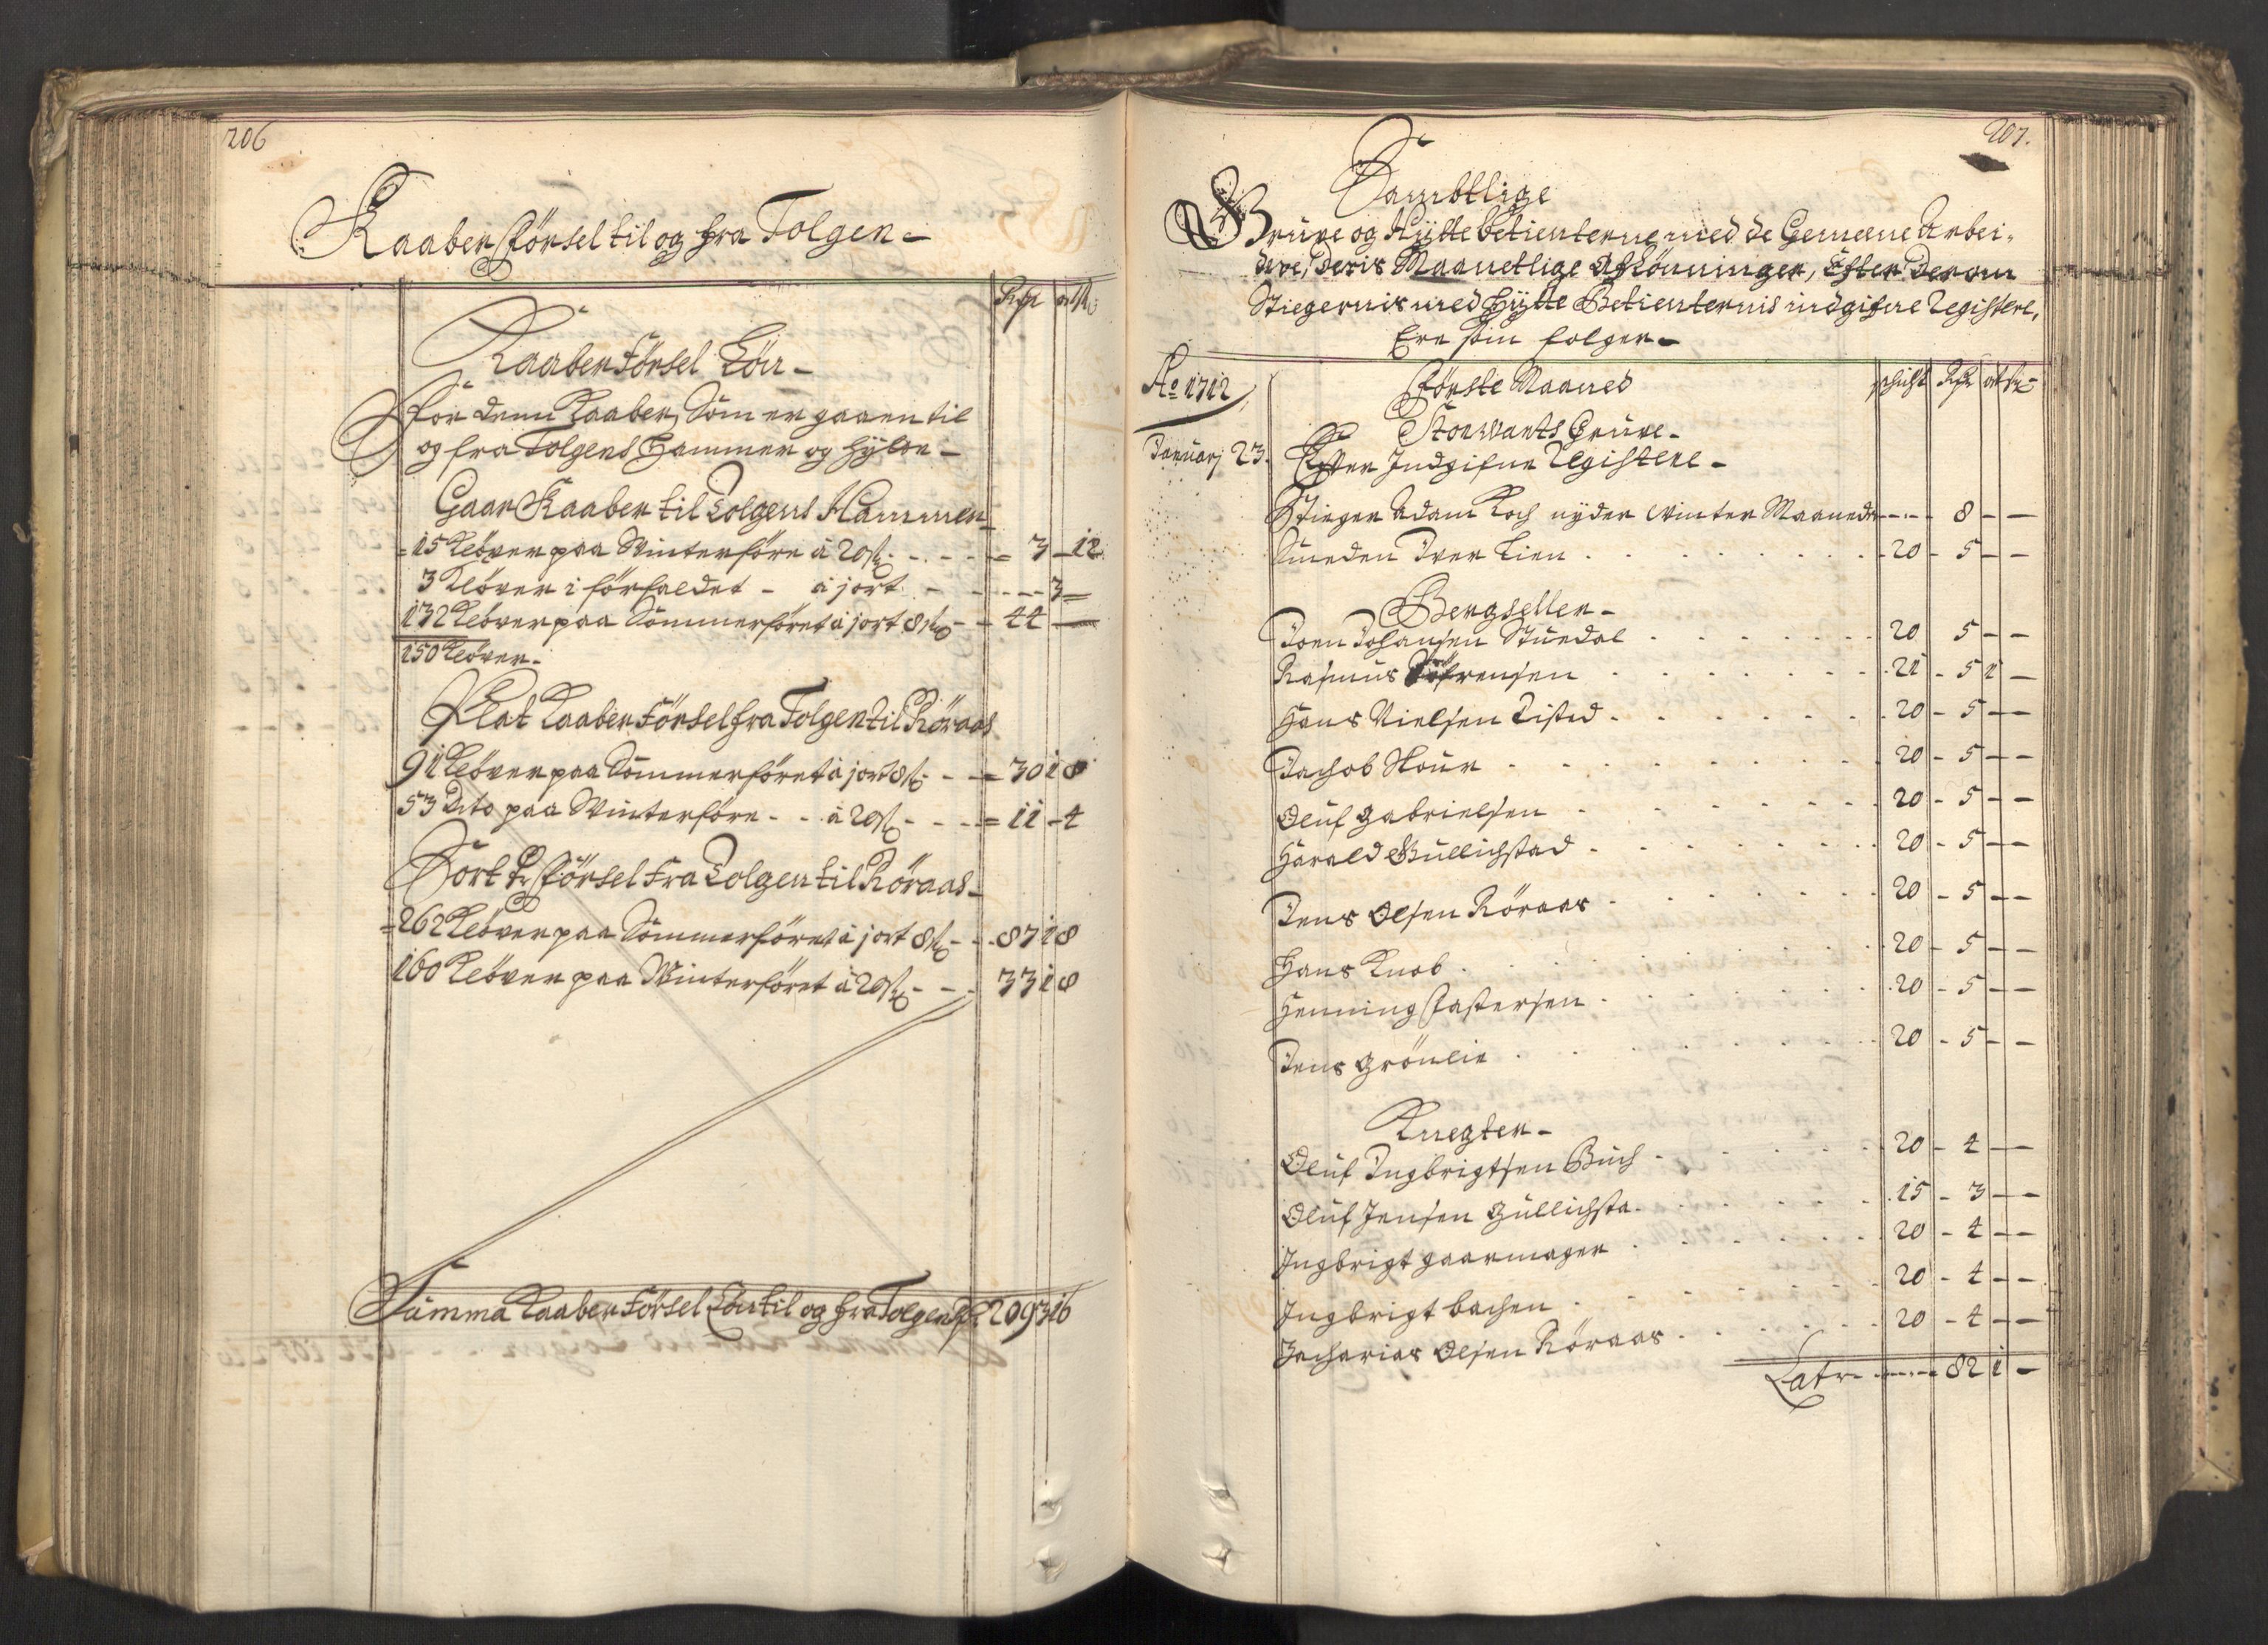 206
Kaaber förseltil og fra Tolgen -
Rdr ort ß
Kaaber Försel Lön -
For denn Kaaber, Som er gaaen til
og fra Tolgens Hammer og hÿtte -
Gaar Kaaber til Tolgens Hammer
15 Klöver paa Winterföre â 20 ß - - - - 3 - 12
3 Klöver i förfaldet - â j ort - - - - - 3 -
132 Klöver paa Sommerföret â j ort 8 ß - - 44 -
150 Klöver -
Plat Kaaber Försel fra Tolgen til Röraas
91 Klöver paa Sommerföret â j ort 8 ß - - 30 1 8
53 Dito paa Winterföre - - â 20 ß - - - - 11 - 4
Sort Försel fra Tolgen til Röraas -
262 Klöver paa Sommerföret â j ort 8 ß - - 87 1 8
160 Klöver paa Winterföret â 20 ß - - - 33 1 8
Summa Kaaber Försel Lön til og fra Tolgen 209 3 16
207.
Sambtlige
Grüve og Hÿtte betienterne med de Gemeene Arbei-
dere, deris Maanetlige Aflönninger, Efter derom
Stiegernis med Hÿtte Betienternis indgifne Registere,
Ere som folger -
Ao 1712
Förste Maaned
schicht Rdr ort ß
Storwarts Grüve -
Januarj 23. Efter Indgifne Registere -
Stieger Adam Koch nÿder Winter Maaneder - - - 8 - -
Smeden Iver Lien . . . . 20 - 5 - -
Bergseller -
Joen Johansen Stuedal . . . . 20 5 - -
Rasmus Söfrensen . . . . 21 - 5 1 -
Hans Nielsen Tisted . . . . 20 - 5 - -
Jachob Skour . . . . 20 - 5 - -
Oluf Gabrielsen . . . . 20 - 5 - -
Harald Gullichstad . . . . 20 - 5 - -
Jens Olsen Röraas . . . . 20 - 5 - -
Hans Knob . . . . 20 - 5 - -
Henning Fastersen . . . . 20 - 5 - -
Jens Grönlie . . . . 20 - 5 - -
Knegter -
Oluf Ingbrigtsen Buch . . . . 20 - 4 - -
Oluf Jensen Gullichsta . . . . 15 - 3 - -
Ingbrigt Gaarmager . . . . 20 - 4 - -
Ingbrigt bachen . . . . 20 - 4 - -
Zacharias Olsen Röraas . . . . 20 - 4 - -
Latr - - - - 82 1 -